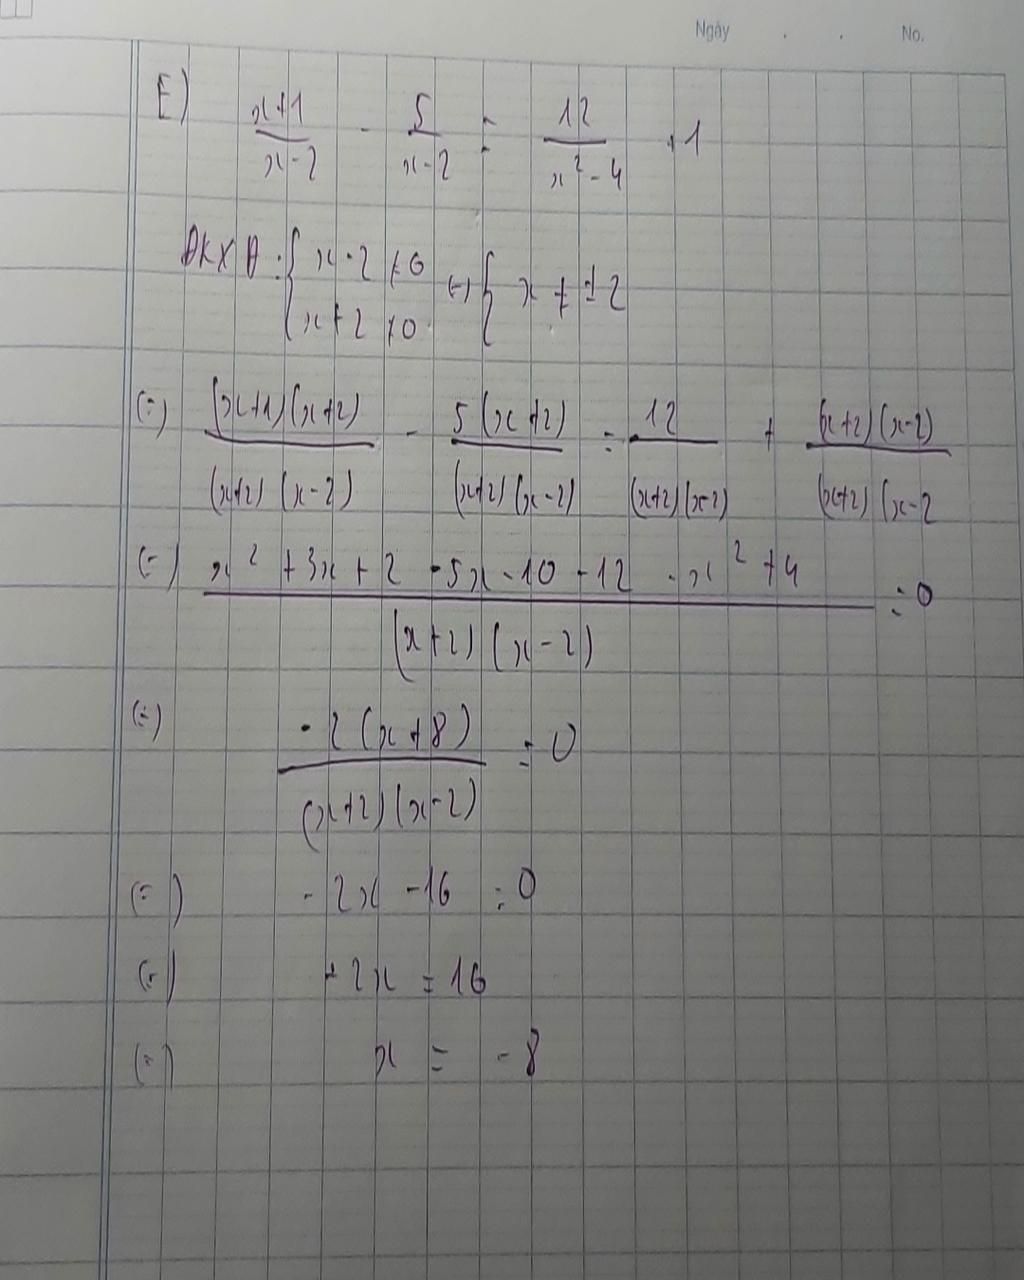 Ngày . . No.
E) \frac{x+1}{x-2} - \frac{5}{x-2} = \frac{12}{x^2-4} + 1
ĐKXĐ: { x-2 ≠ 0 x+2 ≠ 0 (=) { x ≠ ±2
(=) \frac{(x+1)(x+2)}{(x+2)(x-2)} - \frac{5(x+2)}{(x+2)(x-2)} = \frac{12}{(x+2)(x-2)} + \frac{(x+2)(x-2)}{(x+2)(x-2}
(=) \frac{x^2+3x+2-5x-10-12-x^2+4}{(x+2)(x-2)} = 0
(=) \frac{-2(x+8)}{(x+2)(x-2)} = 0
(=) -2x -16 = 0
(=) -2x = 16
(=) x = -8